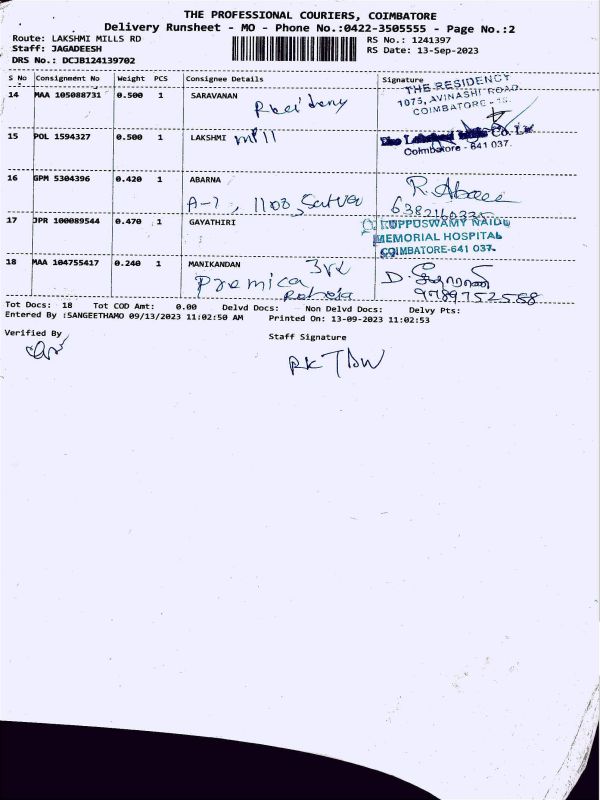 THE PROFESSIONAL COURIERS, COIMBATORE
Delivery Runsheet - MO - Phone No.:0422-3505555 - Page No.:2
Route: LAKSHMI MILLS RD RS No.: 1241397
Staff: JAGADEESH RS Date: 13-Sep-2023
DRS No.: DCJB124139702
S No Consignment No Weight PCS Consignee Details Signature
14 MAA 105088731 0.500 1 SARAVANAN
THE RESIDENCY
1075, AVINASHI ROAD
COIMBATORE - 18.
15 POL 1594327 0.500 1 LAKSHMI mill
Coimbatore - 641 037.
16 GPM 5304396 0.420 1 ABARNA
A-7, 1108,
17 JPR 100089544 0.470 1 GAYATHIRI
KUPPUSWAMY NAIDU
MEMORIAL HOSPITAL
COIMBATORE-641 037.
18 MAA 104755417 0.240 1 MANIKANDAN
D.
9789752588
Tot Docs: 18 Tot COD Amt: 0.00 Delvd Docs: Non Delvd Docs: Delvy Pts:
Entered By :SANGEETHAMO 09/13/2023 11:02:50 AM Printed On: 13-09-2023 11:02:53
Verified By Staff Signature